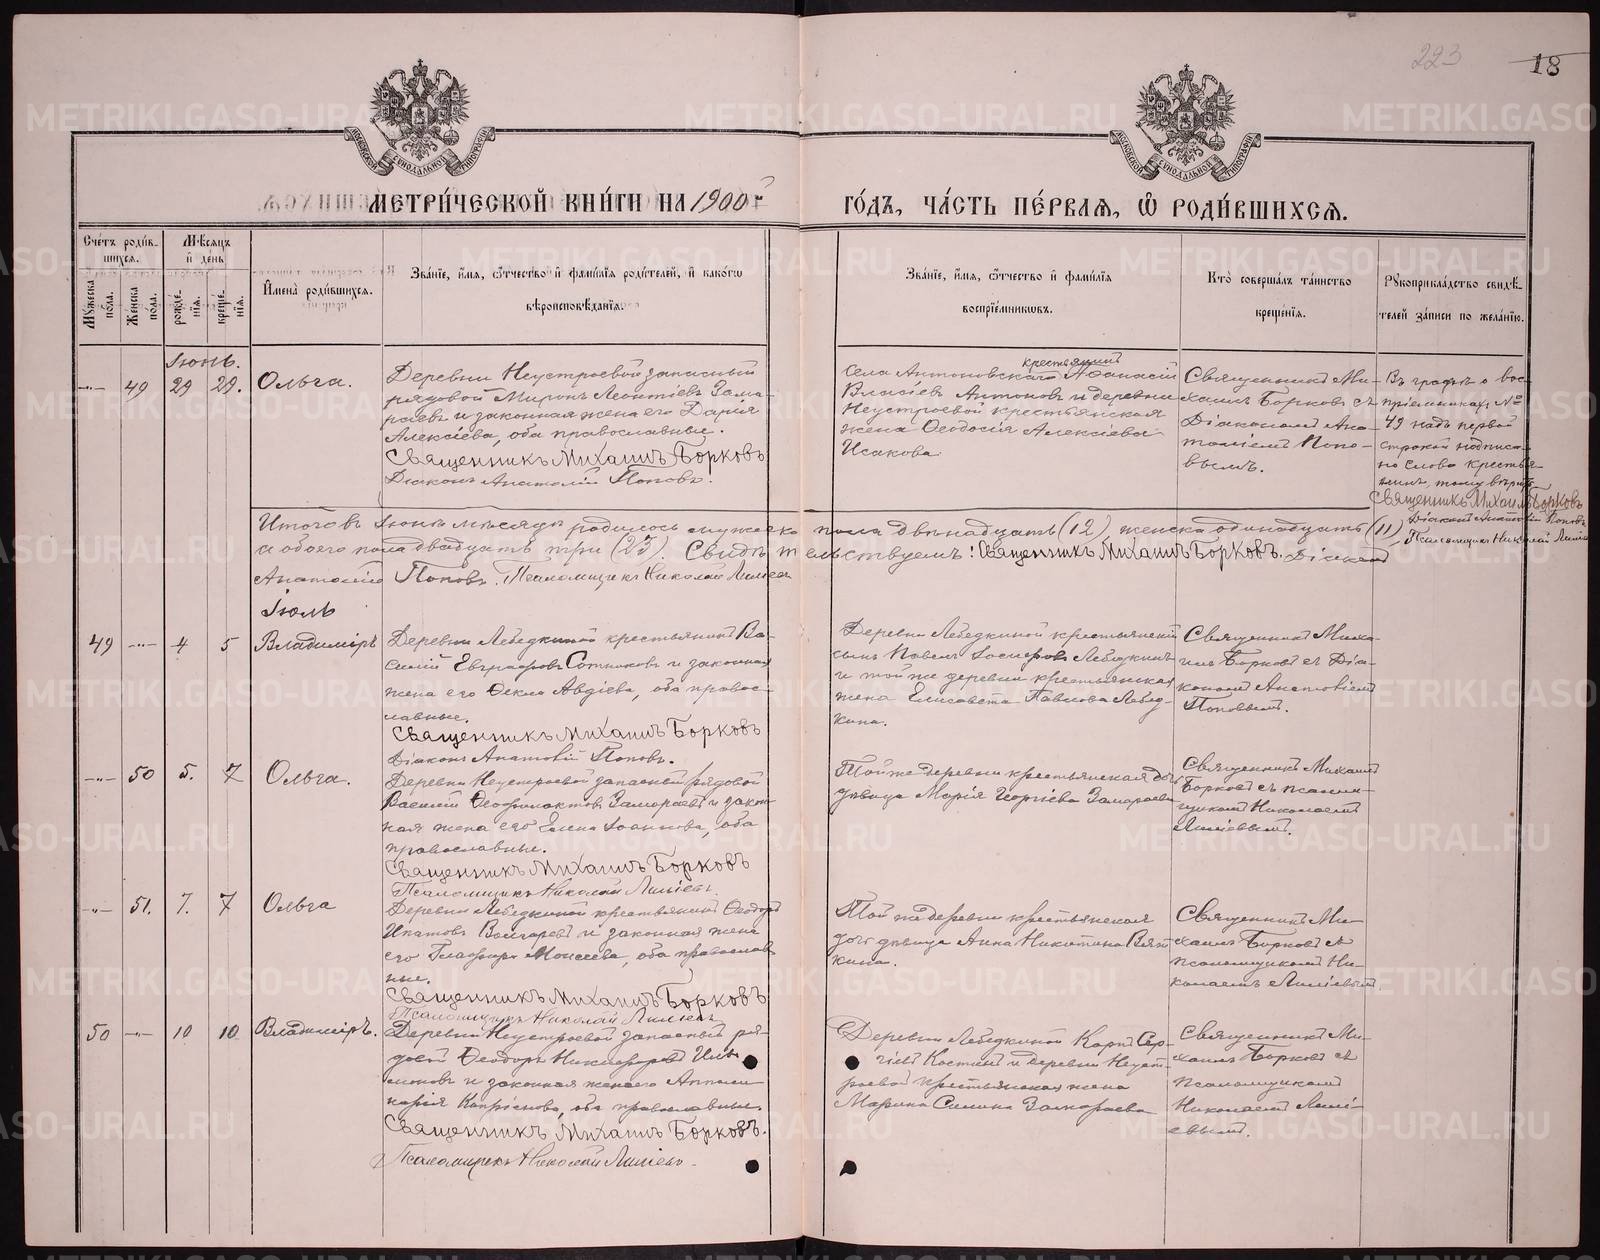 223
18
МЕТРИ́ЧЕСКОЙ КНИ́ГИ НА 1900 й
ГО́ДЪ, ЧА́СТЬ ПЕ́РВАѦ, Ѡ҆ РОДИ́ВШИХСѦ.
Сче́тъ роди́в-
шихся.
Мѣ́сяцъ и де́нь
Му́жеска по́ла.
Же́нска по́ла.
рожде́-
нія.
креще́-
нія.
И҆мена̀ роди́вшихся.
Зва́нїе, и҆́мя, ѻ҆́тчество и҆ фами́лїя роди́телей, и҆ како́гѡ
вѣроисповѣ́данїя.
Зва́нїе, и҆́мя, ѻ҆́тчество и҆ фами́лїя
воспрїе́мниковъ.
Кто̀ соверша́лъ та́инство
креще́нїя.
Рꙋкоприкла́дство свидѣ́-
телей за́писи по жела́нїю.
Іюнь.
-"- 49 29 29. Ольга.
Деревни Неустроевой запасный
рядовой Миронъ Леонтіевъ Зама-
раевъ и законная жена его Дарія
Алексіева, оба православные.
Священникъ Михаилъ Борковъ
Діаконъ Анатолій Поповъ.
крестьянинъ
Села Антоновскаго Афанасій
Власіевъ Антоновъ и деревни
Неустроевой крестьянская
жена Феодосія Алексіева
Исакова
Священникъ Ми-
хаилъ Борковъ съ
Діакономъ Ана-
толіемъ Попо-
вымъ.
Въ графѣ о вос-
пріемникахъ №
49 надъ первой
строкой надписа-
но слово крестья-
нинъ, тому вѣрить
Священникъ Михаилъ Борковъ
Діаконъ Анатолій Поповъ
Псаломщикъ Николай Лиліевъ
Итого въ Іюнѣ мѣсяцѣ родилось мужеска пола двѣнадцать (12), женска одинадцать (11),
а обоего пола двадцать три (23). Свидѣтельствуемъ: Священникъ Михаилъ Борковъ. Діаконъ
Анатолій Поповъ. Псаломщикъ Николай Лиліевъ
Іюль
49 -"- 4 5 Владиміръ
Деревни Лебедкиной крестьянинъ Ва-
силій Евграфовъ Сотниковъ и законная
жена его Фекла Авдіева, оба правос-
лавные.
Священникъ Михаилъ Борковъ
Діаконъ Анатолій Поповъ.
Деревни Лебедкиной крестьянскій
сынъ Павелъ Іосифовъ Лебедкинъ
и той же деревни крестьянская
жена Елисавета Павлова Лебед-
кина.
Священникъ Миха-
илъ Борковъ съ Діа-
кономъ Анатоліемъ
Поповымъ.
-"- 50 5. 7 Ольга.
Деревни Неустроевой запасный рядовой
Василій Феофилактовъ Замараевъ и закон-
ная жена его Елена Іоаннова, оба
православные.
Священникъ Михаилъ Борковъ
Псаломщикъ Николай Лиліевъ.
Той же деревни крестьянская дочь
дѣвица Марія Георгіева Замараева
Священникъ Михаилъ
Борковъ съ псалом-
щикомъ Николаемъ
Лиліевымъ.
-"- 51. 7. 7 Ольга
Деревни Лебедкиной крестьянинъ Феодоръ
Ипатовъ и законная жена
его Глафира Моисеева, оба православ
ные.
Священникъ Михаилъ Борковъ
Псаломщикъ Николай Лиліевъ
Той же деревни крестьянская
дочь дѣвица Анна Никитина Вят-
кина.
Священникъ Ми-
хаилъ Борковъ съ
псаломщикомъ Ни-
колаемъ Лиліевымъ
50 -"- 10 10 Владиміръ.
Деревни Неустроевой запасный ря-
довой Феодоръ Никифоровъ
и законная жена его Аполи-
нарія Капрісиова, оба православные.
Священникъ Михаилъ Борковъ.
Псаломщикъ Николай Лиліевъ.
Деревни Лебедкиной Карпъ Сер-
гіевъ Костинъ и деревни Неуст-
роевой крестьянская жена
Марина Силина Замараева
Священникъ Ми-
хаилъ Борковъ съ
псаломщикомъ
Николаемъ Лилі-
евымъ.
METRIKI.GASO-URAL.RU